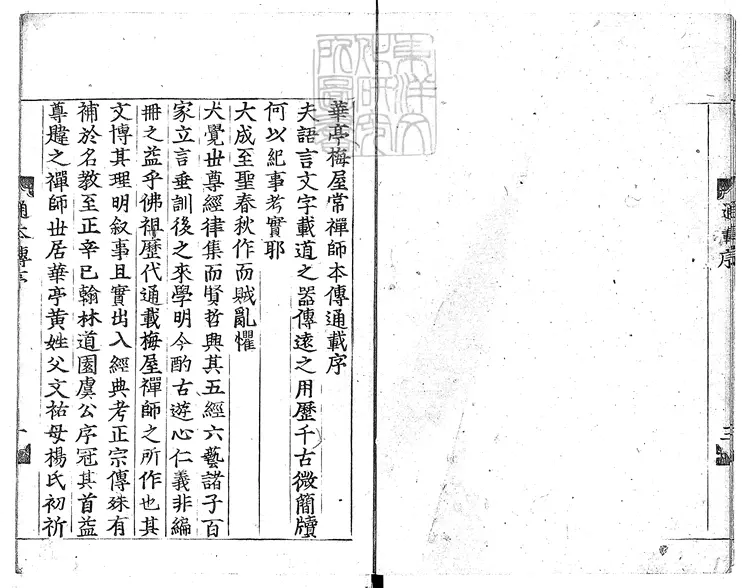 通載序
三
東洋文
化研究
所圖書
華亭梅屋常禪師本傳通載序
夫語言文字載道之器傳遠之用歷千古微簡牘
何以紀事考實耶
大成至聖春秋作而賊亂懼
大覺世尊經律集而賢哲興其五經六藝諸子百
家立言垂訓後之來學明今酌古遊心仁義非編
冊之益乎佛祖歷代通載梅屋禪師之所作也其
文博其理明叙事且實出入經典考正宗傳殊有
補於名教至正辛巳翰林道園虞公序冠其首益
尊韙之禪師世居華亭黃姓父文祐母楊氏初祈
通本傳序
一